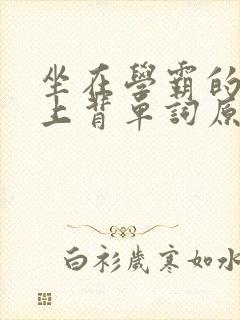 坐在學霸的
上背單詞原
白衫歲寒如水